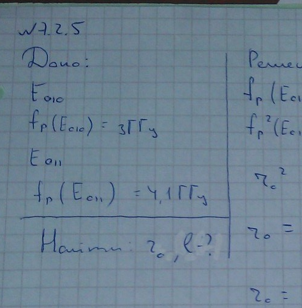 №7.2.5
Дано:
E₀₁₀
fₚ(E₀₁₀) = 3ГГц
E₀₁₁
fₚ(E₀₁₁) = 4,1ГГц
Найти: r₀, l-?
Решен
fₚ(E₀₁
fₚ²(E₀₁
r₀²
r₀ =
r₀ =